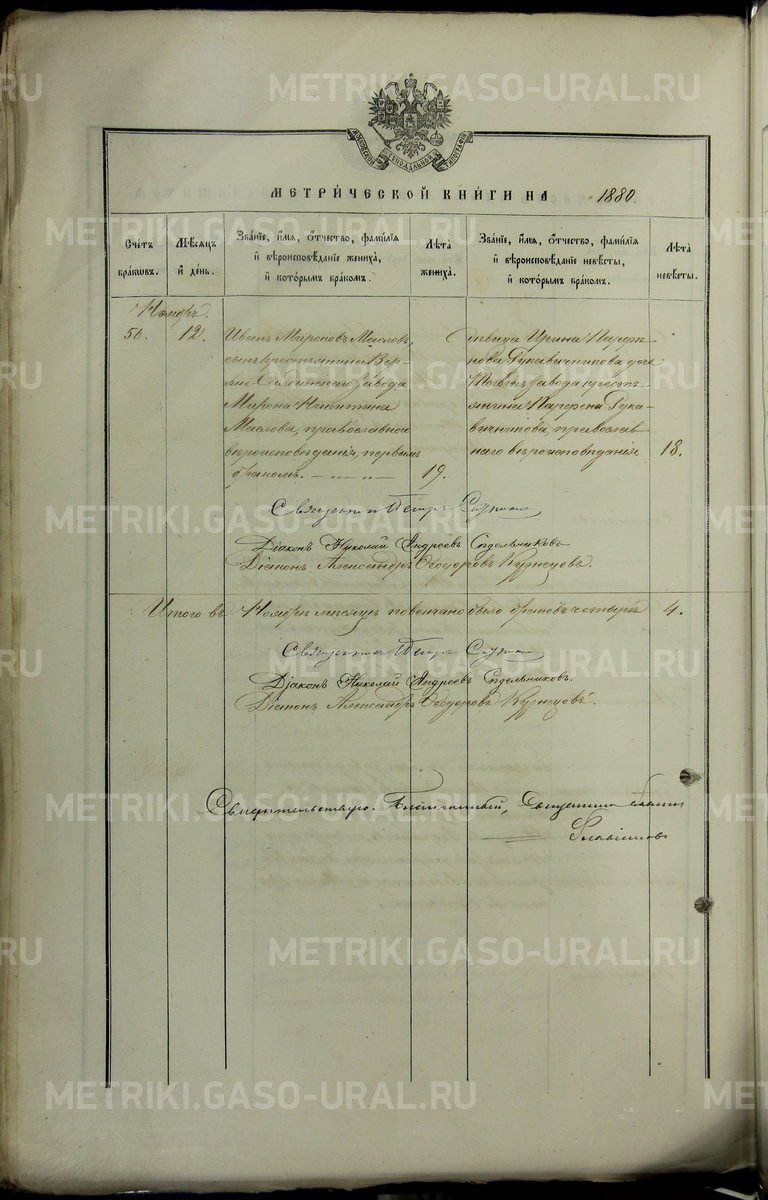 МОСКОВСКОЙ СѴНОДАЛЬНОЙ ТИПОГРАФІИ
МЕТРИ́ЧЕСКОЙ КНИ́ГИ НА 1880.
Сче́тъ бра́кѡвъ.
Мѣ́сѧцъ и҆ де́нь.
Зва́нїе, и҆́мѧ, ѻ҆́тчество, фами́лїѧ
и҆ вѣроисповѣ́данїе жениха̀,
и҆ кото́рымъ бра́комъ.
Лѣ́та
жениха̀.
Зва́нїе, и҆́мѧ, ѻ҆́тчество, фами́лїѧ
и҆ вѣроисповѣ́данїе невѣ́сты,
и҆ кото́рымъ бра́комъ.
Лѣ́та
невѣ́сты.
Ноябрь.
56. 12.
Иванъ Мироновъ Масловъ,
сынъ крестьянина Вер-
хне Салдинскаго завода
Мирона Никитина
Маслова, православнаго
вѣроисповѣданія, первымъ
бракомъ.
19.
Дѣвица Ирина Парфе-
нова Рукавичникова дочь
завода кресть-
янина Парфена Рука-
вичникова, православ-
наго вѣроисповѣданія
18.
Священникъ Петръ
Діаконъ Николай Андреевъ Сѣдельниковъ
Діаконъ Александръ Ѳеодоровъ Кузнецовъ.
Итого въ Ноябрѣ мѣсяцѣ повенчано было браковъ четыре 4.
Священникъ Петръ
Діаконъ Николай Андреевъ Сѣдельниковъ.
Діаконъ Александръ Ѳеодоровъ Кузнецовъ.
Свидѣтельствую. Благочинный, Священникъ
METRIKI.GASO-URAL.RU